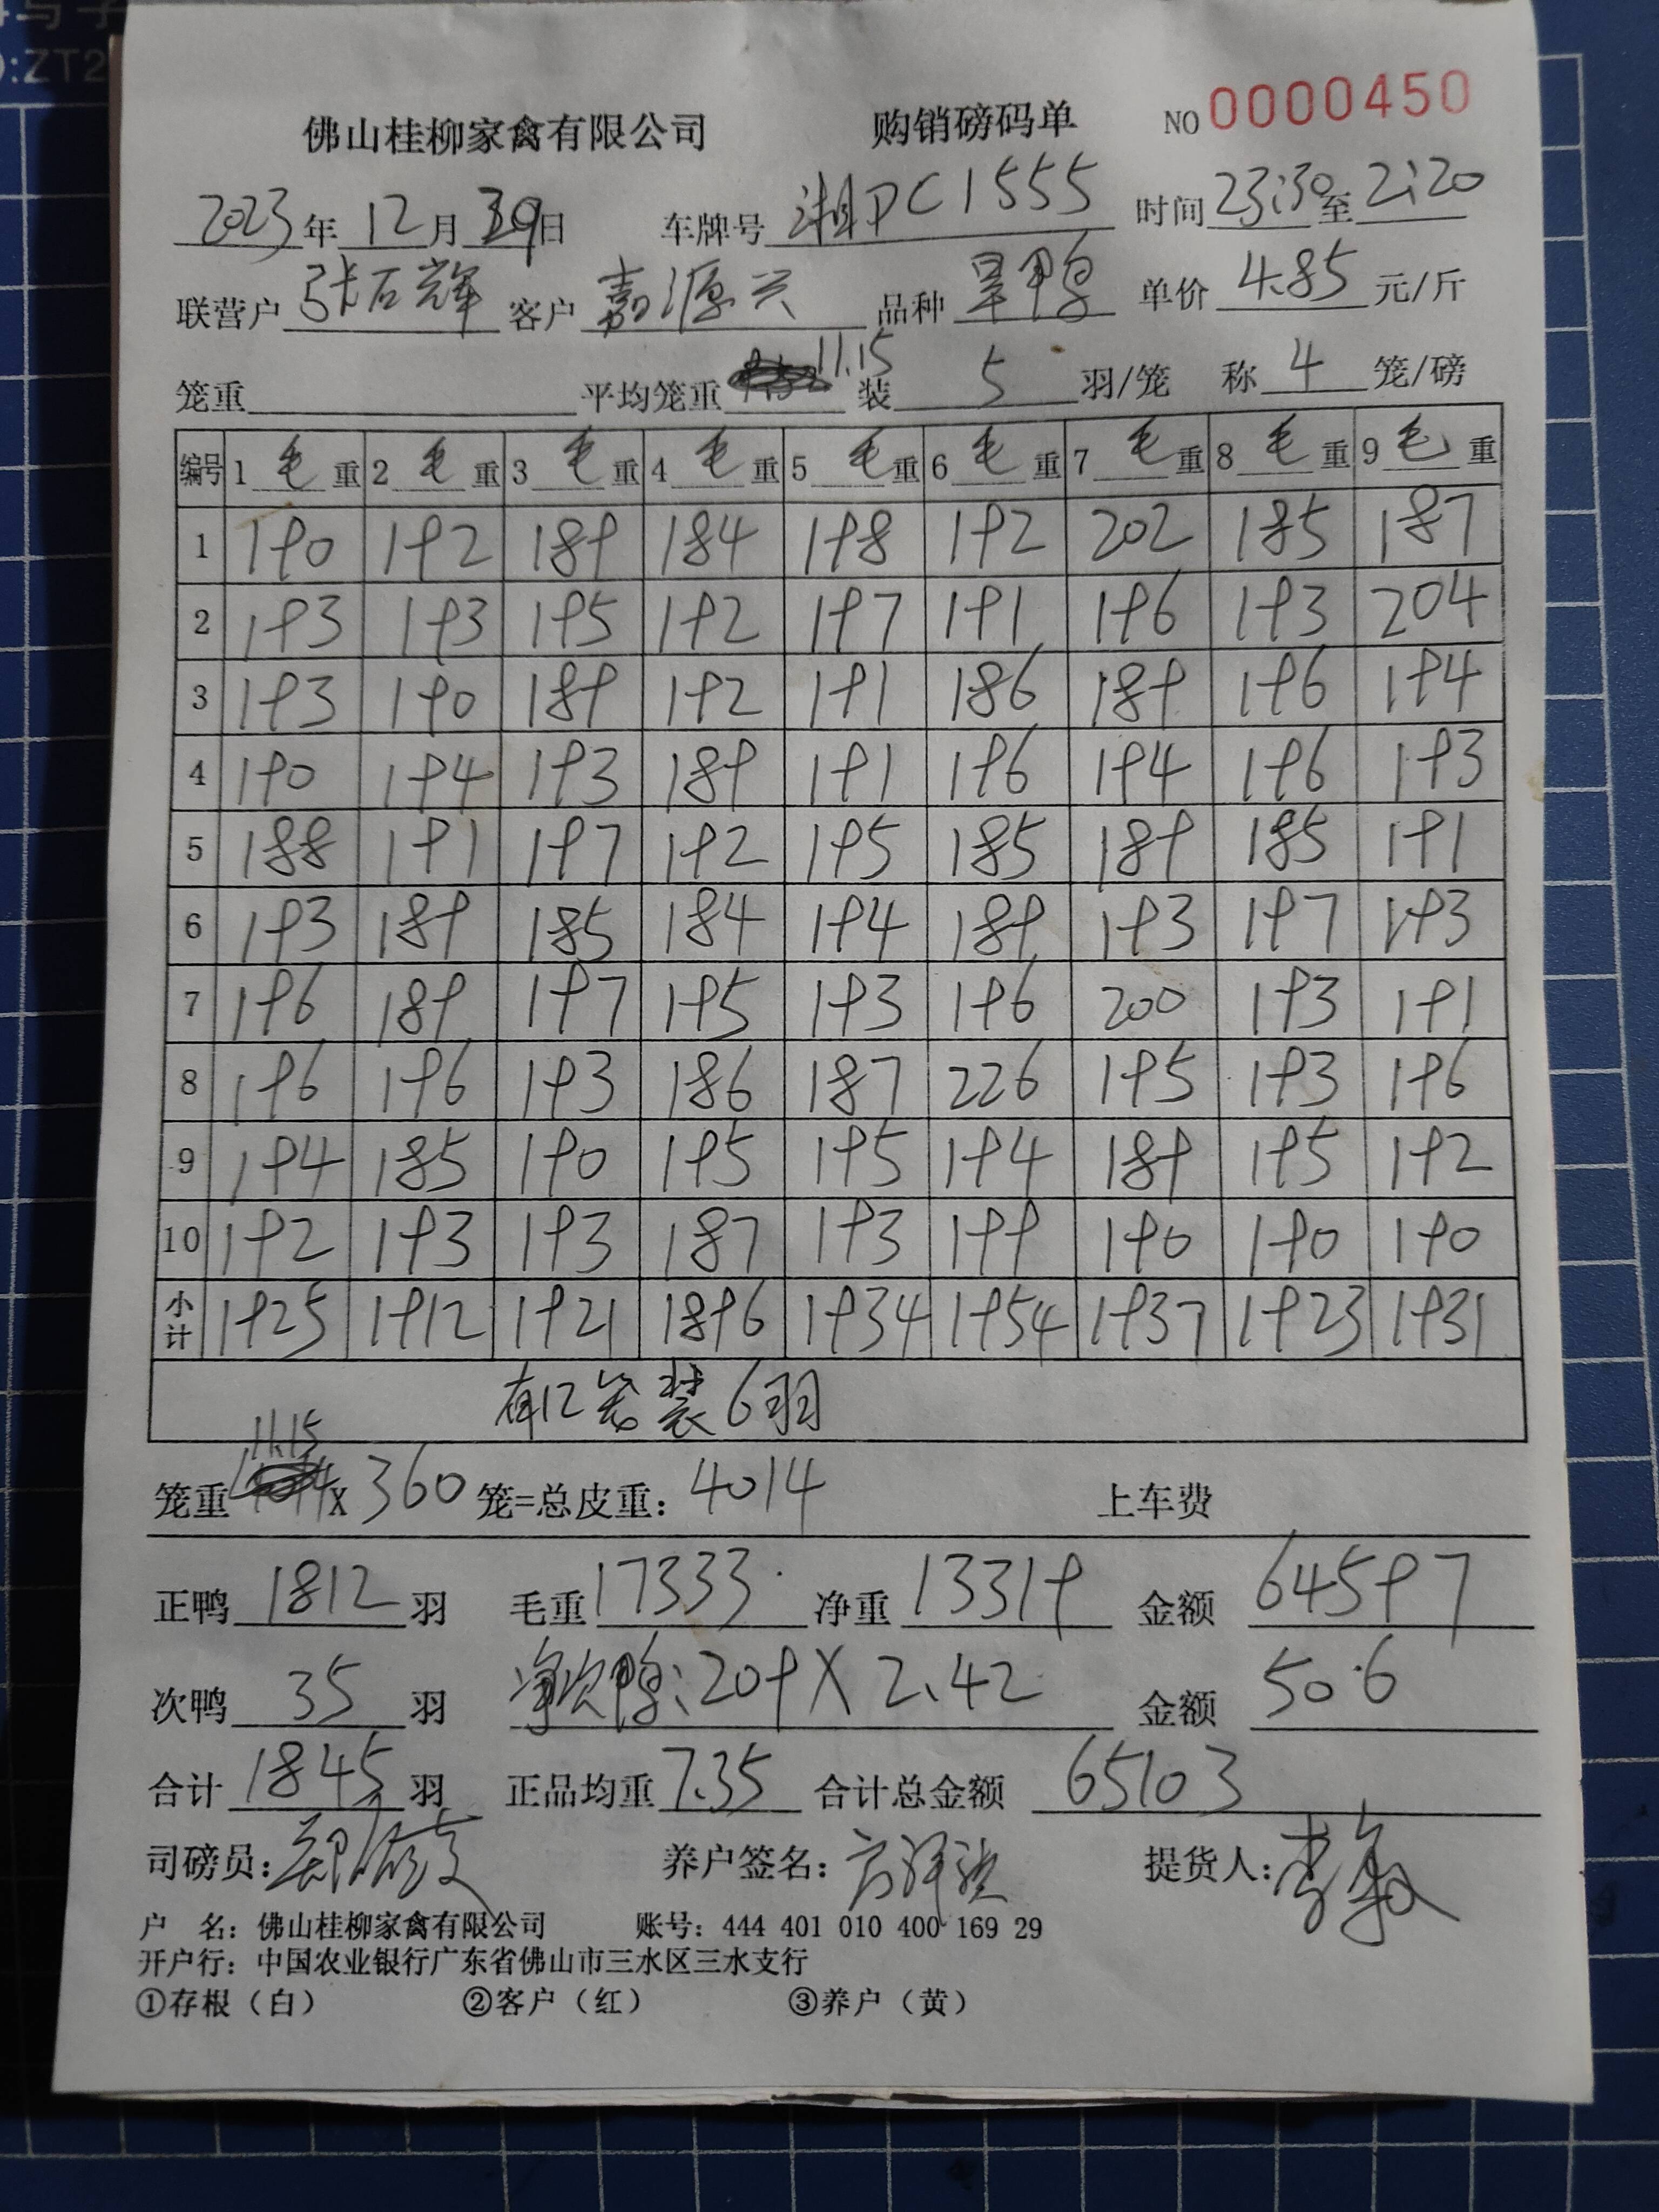 佛山桂柳家禽有限公司 购销磅码单 NO 0000450
2023年12月30日 车牌号 湘DC1555 时间23:30至2:20
联营户 张石辉 客户 嘉源兴 品种 旱鸭 单价 4.85 元/斤
笼重 平均笼重 11.15 装 5 羽/笼 称 4 笼/磅
编号 1 毛 重 2 毛 重 3 毛 重 4 毛 重 5 毛 重 6 毛 重 7 毛 重 8 毛 重 9 毛 重
1 190 192 189 184 198 192 202 185 187
2 193 193 195 192 197 191 196 193 204
3 193 190 189 192 191 186 189 196 194
4 190 194 193 189 191 196 194 196 193
5 188 191 197 192 195 185 189 185 191
6 193 189 185 184 194 189 193 197 193
7 196 189 197 195 193 196 200 193 191
8 196 196 193 186 187 226 195 193 196
9 194 185 190 195 195 194 189 195 192
10 192 193 193 187 193 199 190 190 190
小计 1925 1912 1921 1896 1934 1954 1937 1923 1931
有12笼装6羽
笼重 11.15 X 360 笼=总皮重: 4014 上车费
正鸭 1812 羽 毛重 17333 净重 13319 金额 64597
次鸭 35 羽 净次鸭:209 X 2.42 金额 506
合计 1845 羽 正品均重 7.35 合计总金额 65103
司磅员: 养户签名: 提货人:
户 名: 佛山桂柳家禽有限公司 账号: 444 401 010 400 169 29
开户行: 中国农业银行广东省佛山市三水区三水支行
①存根（白） ②客户（红） ③养户（黄）